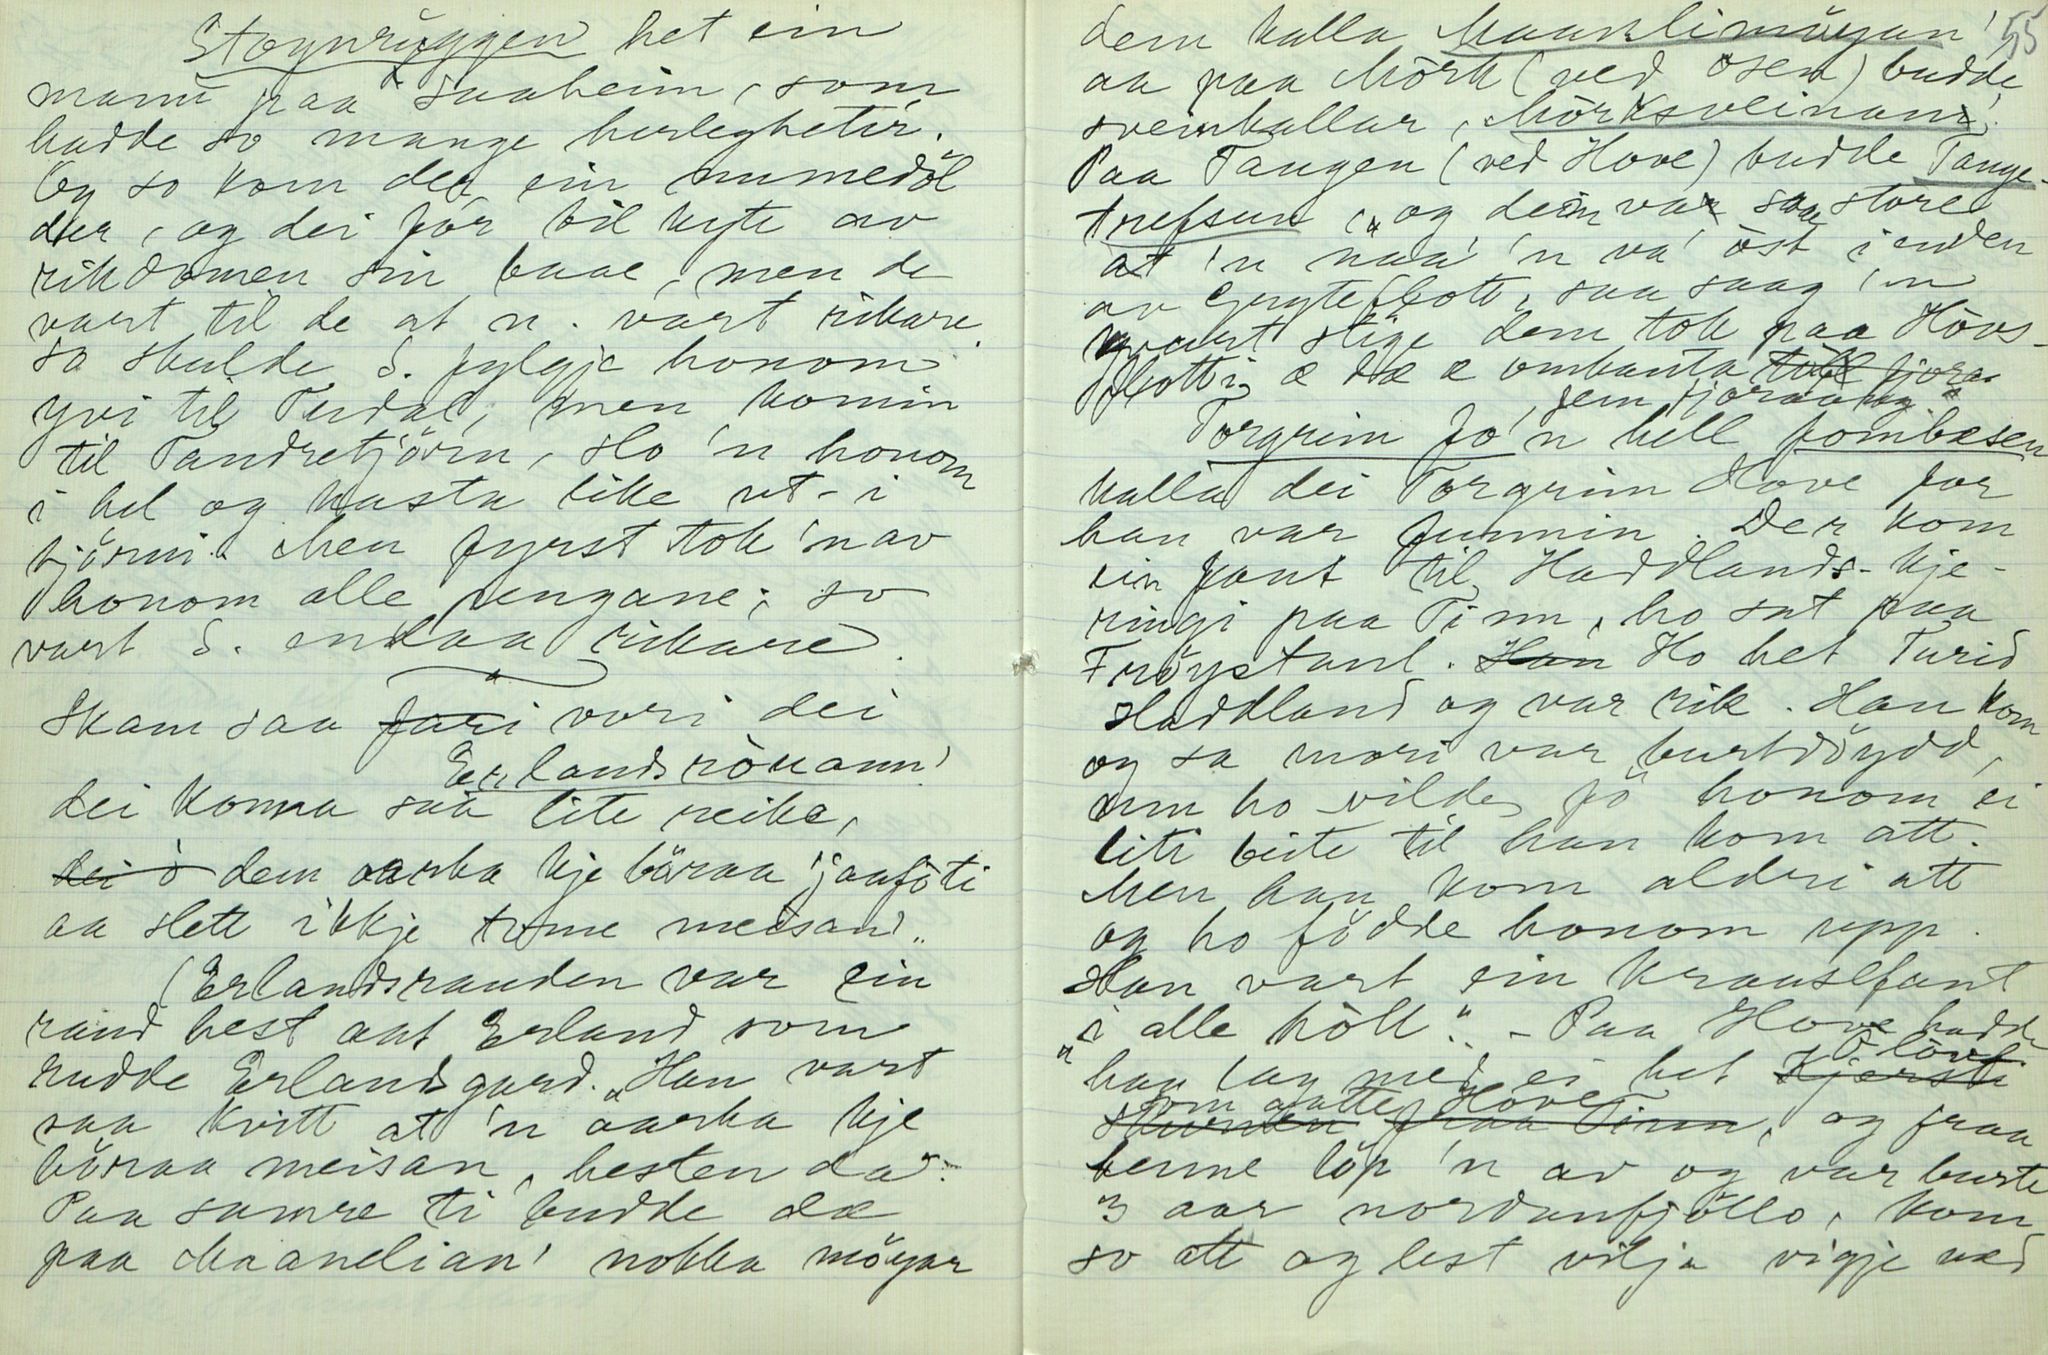 Støynryggen het ein
mann paa Saaheim, som
hadde so mange herlegheitir.
Og so kom der ein numedøl
der, og dei fór til kyte av
rikdomen sin baae, men de
vart til de at n. vart rikare
so skulde S. fylgje honom
yvi til Tudal, men komin
til Tandretjörn, slo 'n honom
i hel og kasta like ut-i
tjörni. Men fyrst tok 'n av
honom alle pengane; so
vart S. endaa rikare.
Skam saa fari vori dei
Erlandsröuann'
dei konna saa lite reike,
dei ò dem aarka kje böraa 'jaaföti
aa slett ikkje tome meisan'."
(Erlandsrauden var ein
raud hest aat Erland som
rudde Erlandsgard. "Han vart
saa kvitt at 'n aarka kje
böraa meisan, hesten da".
Paa samre ti budde dæ
paa Maanelian' nokka möyar
55
dem kalla Maanlimöyan'
aa paa Mörk (ved Osen) budde
sveinkallar, Mörksveinan'.
Paa Tangen (ved Hove) budde Tange-
trefsun, "og dein var saa store
at 'n naa' 'n va' öst i enden
av Gryteflott, saa saag 'n
kvart stige dem tok paa Hövs-
flotti, æ dæ æ ombanta till fjora
fem fjoraaog"
Torgrim Jo'n hell fombæsen
kalla dei Torgrim Hove for
han var funnin. Der kom
ein fant til Haddlands-kje-
ringi paa Tinn, ho sat paa
Fröystaul. Han Ho het Turid
Haddland og var rik. Han kom
og sa mori var burtdöydd,
um ho vilde fö honom ei
liti beite til han kom att.
Men han kom aldri att
og ho födde honom upp.
Han vart ein kranslfant
"i alle höll". - Paa Hove hadde
han lag med ei het Kjersti Olöv
skurden fraa Tinn som aatte Hove, og fraa
henne löp 'n av og var burte
3 aar nordanfjöllo, kom
so att og lest vilja vigje ved